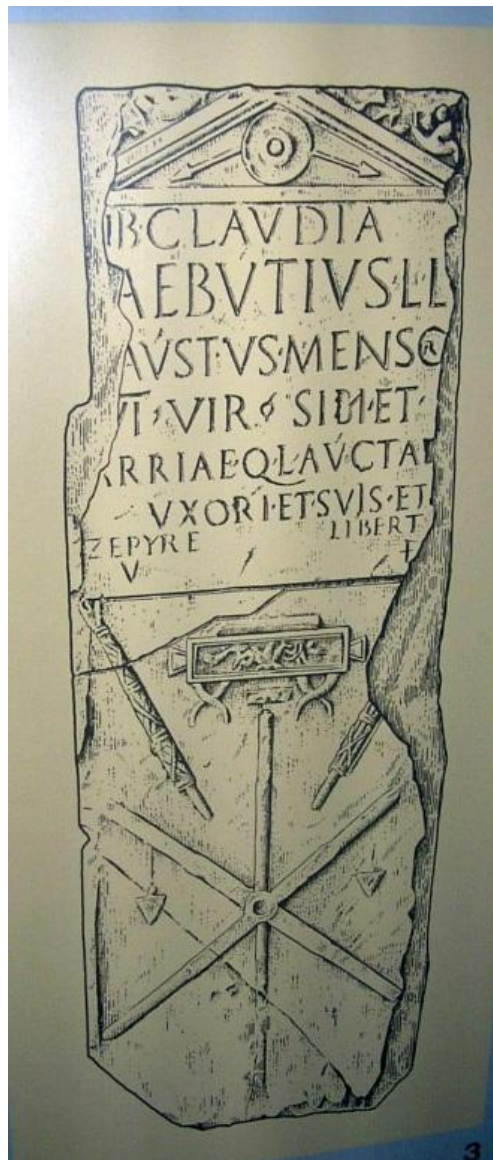 IB·CLAVDIA
AEBVTIVS·L·L
AVST·VS·MENSOR
VI·VIR SIBI·ET·
ARRIAE·Q·L·AVCTAE
VXORI·ET·SVIS·ET
ZEPYRE LIBERT
V
3